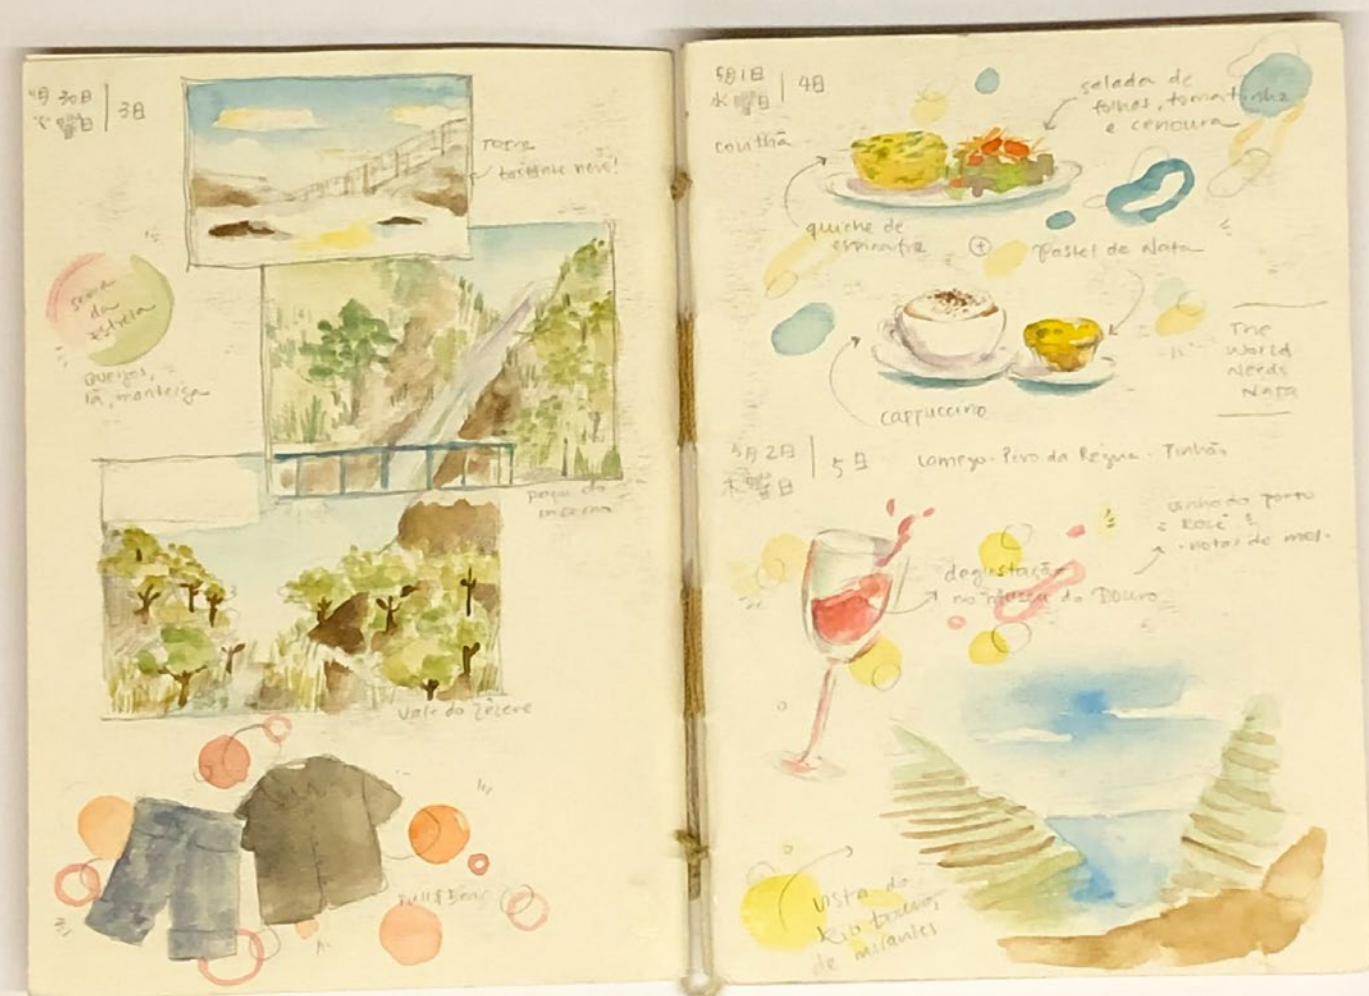 4月30日
火曜日
3日
Torre
bastante neve!
serra
da
estrela
Queijos,
lã, manteiga
Vale do Zêzere
Pull & Bear
5月1日
水曜日
4日
Covilhã
salada de
folhas, tomatinho
e cenoura
quiche de
espinafre
+
Pastel de Nata
cappuccino
The
World
Needs
Nata
5月2日
木曜日
5日
Lamego · Peso da Régua · Pinhão
vinho do porto
rosé
notas de mel.
degustação
no museu do Douro
vista do
Rio Douro,
de mirantes